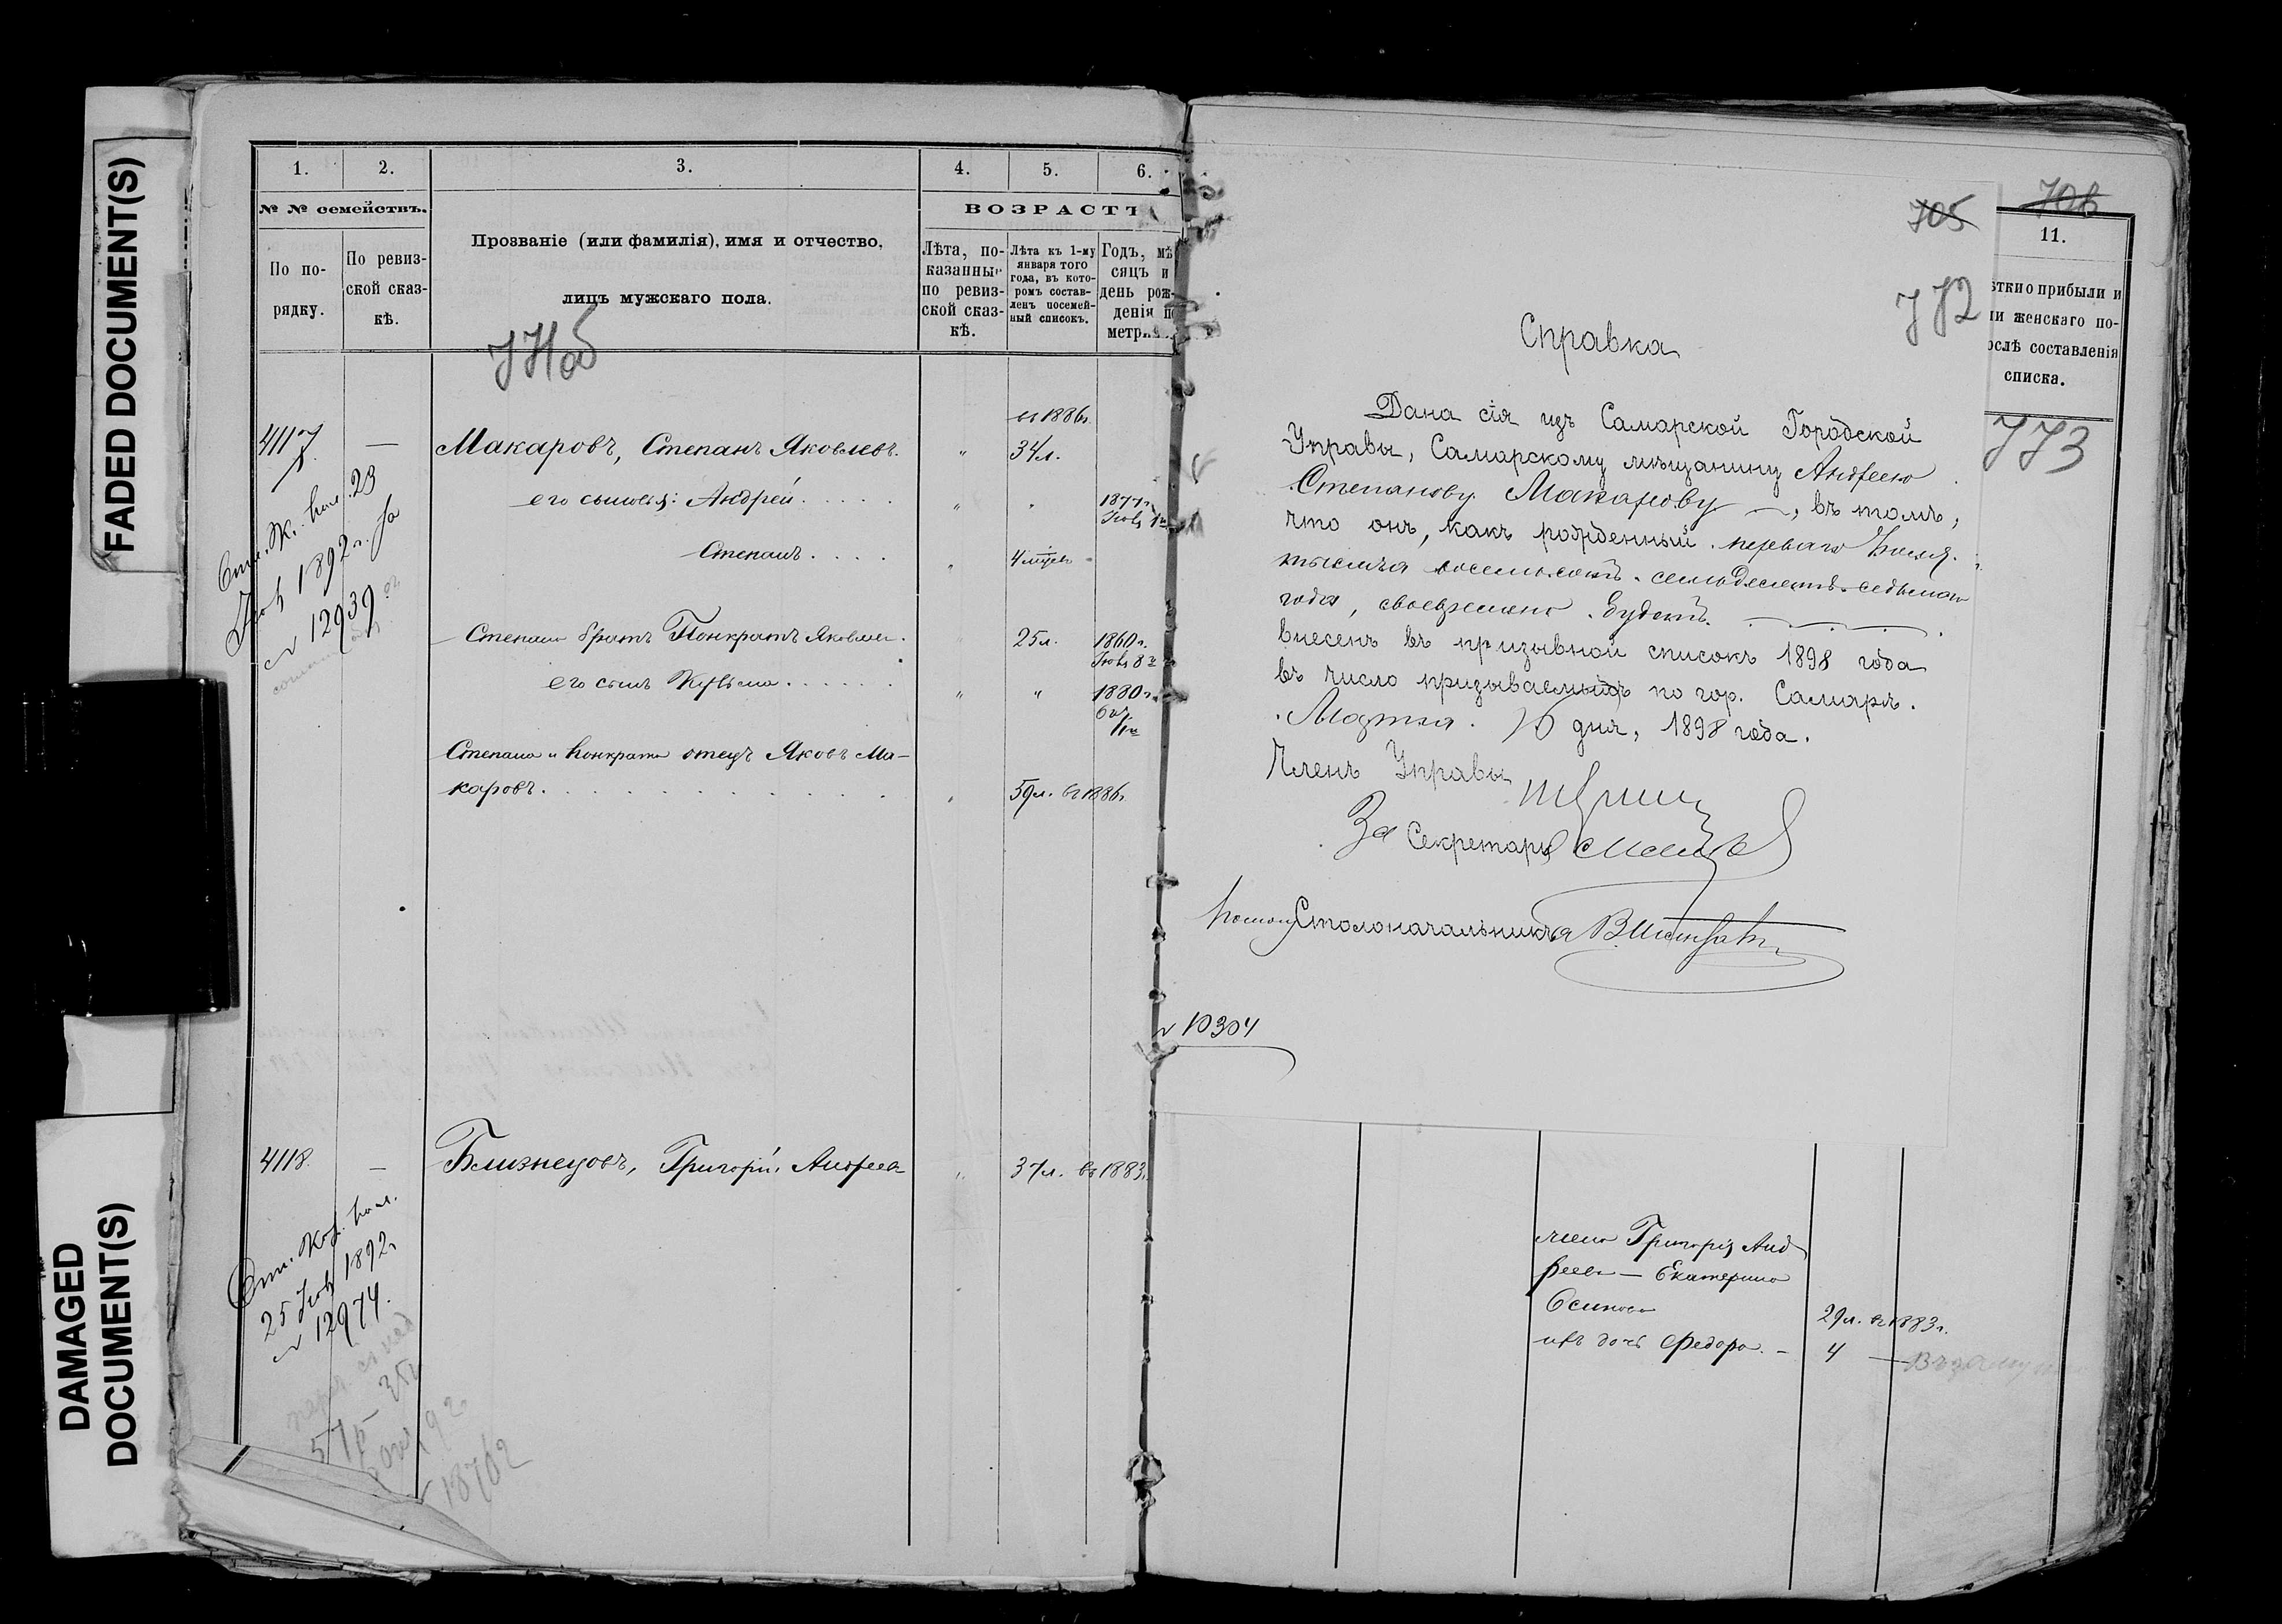 FADED DOCUMENT(S)
DAMAGED
DOCUMENT(S)
1.
2.
3.
4.
5.
6.
№ № семействъ.
ВОЗРАСТЪ
По по-
рядку.
По ревиз-
ской сказ-
кѣ.
Прозваніе (или фамилія), имя и отчество,
лицъ мужскаго пола.
Лѣта, по-
казанныя
по ревиз-
ской сказ-
кѣ.
Лѣта къ 1-му
января того
года, въ кото-
ромъ состав-
ленъ посемей-
ный списокъ.
Годъ, мѣ-
сяцъ и
день рож-
денія п
метри
въ 1886г.
4117
—
Макаровъ, Степанъ Яковлевъ.
34л.
его сыновья: Андрей
1877г.
Степанъ
Степана братъ Понкратъ Яковлев.
25л.
1860г.
его сынъ Кузьма
1880г.
Степана и Понкрата отецъ Яковъ Ма-
каровъ.
59л. въ 1886г.
1892г.
№ 12939
4118.
—
Близнецовъ, Григорій Андреев
37л. въ 1883г.
25
1892г.
№ 12974.
18762
705
706
772
773
11.
тки о прибыли и
и женскаго по-
ослѣ составленія
списка.
Справка
Дана сія изъ Самарской Городской
Управы, Самарскому мѣщанину Андрею
Степанову Макарову —, въ томъ,
что онъ, какъ рожденный перваго
тысяча восемьсотъ семьдесятъ седьмаго
года, своевременно будетъ
внесенъ въ призывной списокъ 1898 года
въ число призываемыхъ по гор. Самарѣ.
Марта 10 дня, 1898 года.
Членъ Управы
За Секретаря
Столоначальника
№ 10304
жена Григорія Анд
реева — Екатерина
Осипова
29л. въ 1883г.
ихъ дочь Федора. —
4